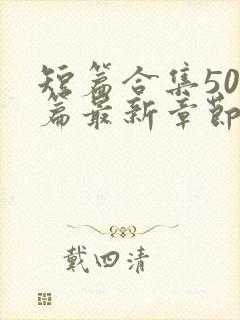 短篇合集50
篇最新章節
戴四清